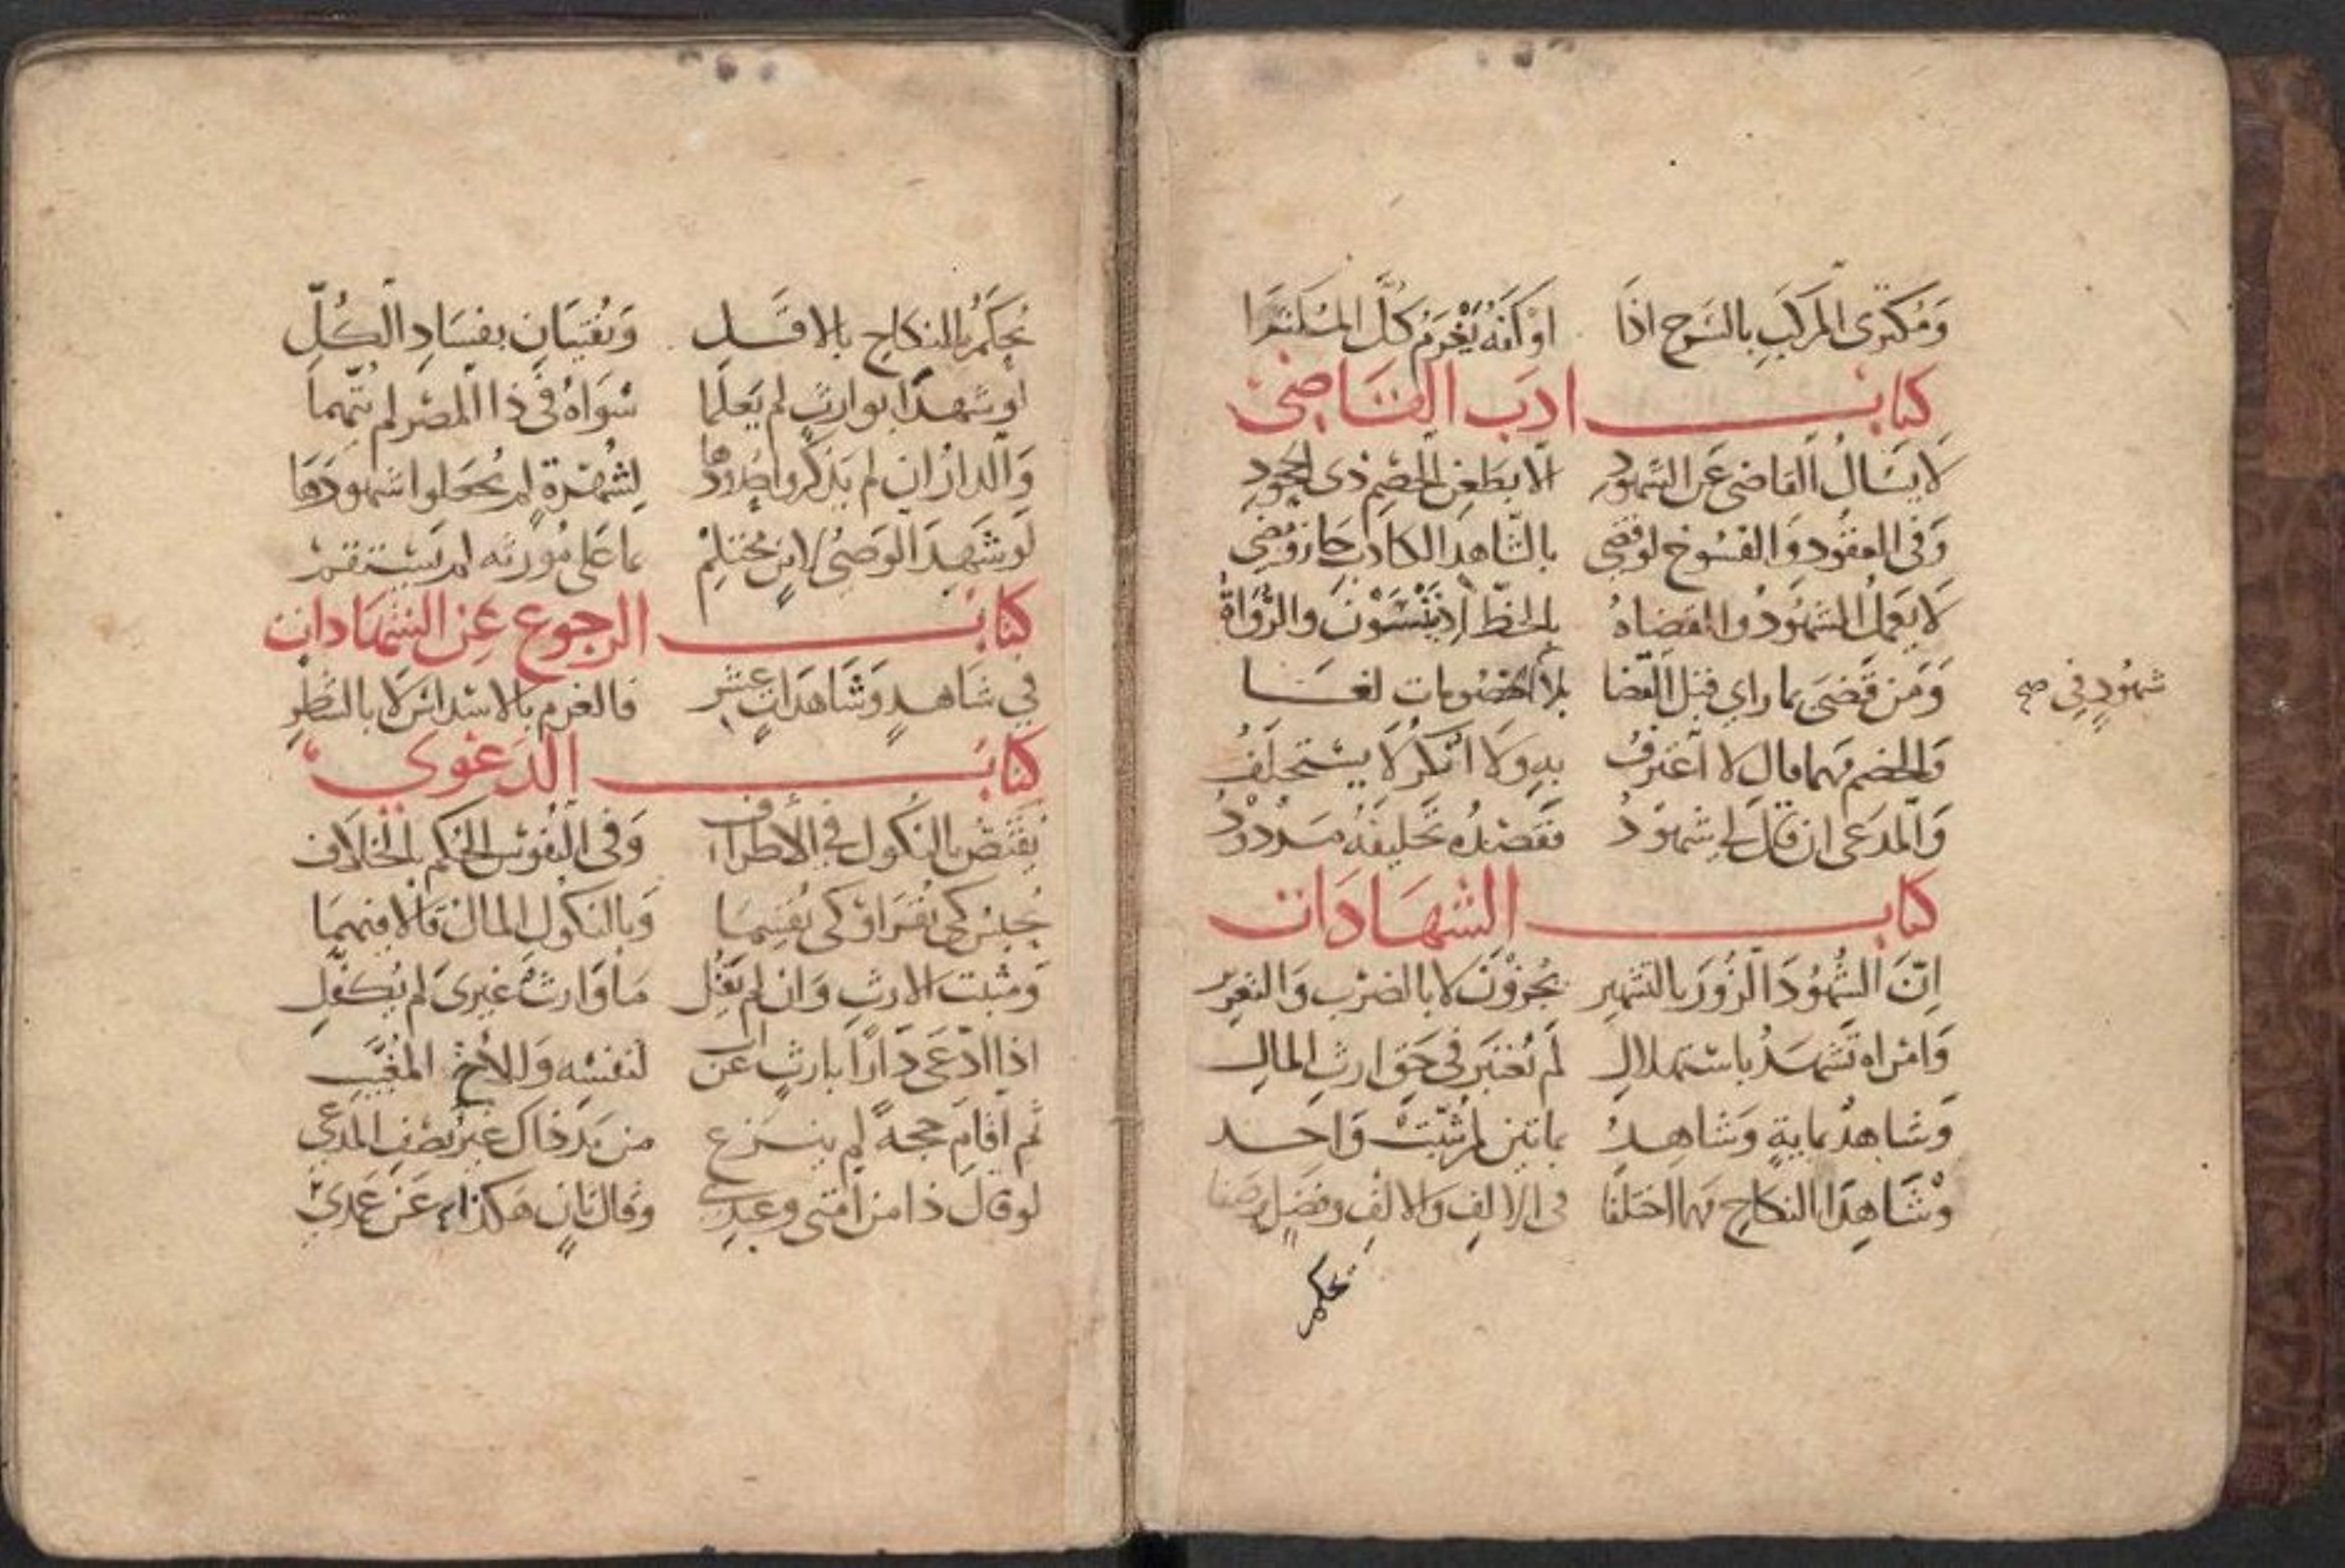 وَمُكتَرِى المَركَبِ بِالسَرجِ اذَا اوْكَفَهُ يَغْرَمُ كلَّ المُكترَا
كتاب ادَب القَاضى
لَا يَسْالُ القَاضِى عَن الشهُودِ الا بطَعنِ الخَصْمِ ذِى الجحُودِ
وَفى العقُودِ وَالفسُوخ لو قضِى بالشَاهدِ الكاذبِ جَازَ وَمُضِى
لَا يَعمَلُ الشهُودُ وَالقضَاهُ بالخطّ اذ يَنْسَوْنَ والرُّوَاةُ
وَمَن قَضَى بما راي قبْل القَضا بلا خصُومات لغَا
شهُودٍ فِي صح
وَالخصْم مَهما قال لا اعْترفُ بهِ وَلَا انْكرُ لَا يسْتحلَفُ
وَالمدعى ان قَالَ لِي شهُودُ فقَصْدُه تحَليفَهُ مَرْدُوْدُ
كتاب الشهَادَات
اِنّ الشُهُودَ الزُوَرَ بالتشهِير يُجزَوْنَ لا بالضرْب وَالتعزِيْر
وَامْراه تَشهَدُ باسْتهلالِ لَم تُعْتبَر فى حَق ارثِ المَالِ
وَشَاهدٌ بمايةٍ وَشاهِدُ بماتينِ لم يُثبِتْ وَاحد
وَشَاهِدَا النكاح مَهما اختلفَا فى الالفِ وَالالفِ وفضلٍ وصفا
يحكم
يُحكَمُ بالنكاح بالاقَل وَيُفتيَانِ بفسَادِ الكُلِّ
اوشهدَا بوارثٍ لم يَعلَما سْوَاهُ فى ذا المصْر لم يتّهما
وَالدارُ ان لم يَذكروا حدُودهَا لِشُهْرةٍ لم يُجعَلوا شهودَهَا
لَو شَهِدَ الوَصىُّ لابنٍ محْتلِمْ بما عَلى مُورثه لم يسْتقمْ
كتاب الرجوع عَن الشهَادات
في شاهدٍ وَشاهدَاتٍ عشْرِ فالغرم بالاسْداسِ لَا بالشطْرِ
كتاب الدَعوي
يُقتَصّ بالنكُول في الأطراف وَفى النفوسْ الحُكم بالخلاف
يُحبَسُ كى يقرَ اوْ كى يُقسِمَا وَبالنكُول المال قَالا فيهمَا
وَمثبت الارثِ وَان لم يَقُل مَا وَارثٌ غيرىَ لم يُكفّلِ
اذا ادّعَى دَارًا بارثٍ عن اب لنفسْه وَالأخ المُغَيَّبِ
ثم اقامَ حجةً لم ينزع من يَد ذاك غيرُ نصْفِ المدعي
لو قال ذا من امتى وعبدِى وقال ثانٍ هَكذا عَن عَمدِىْ